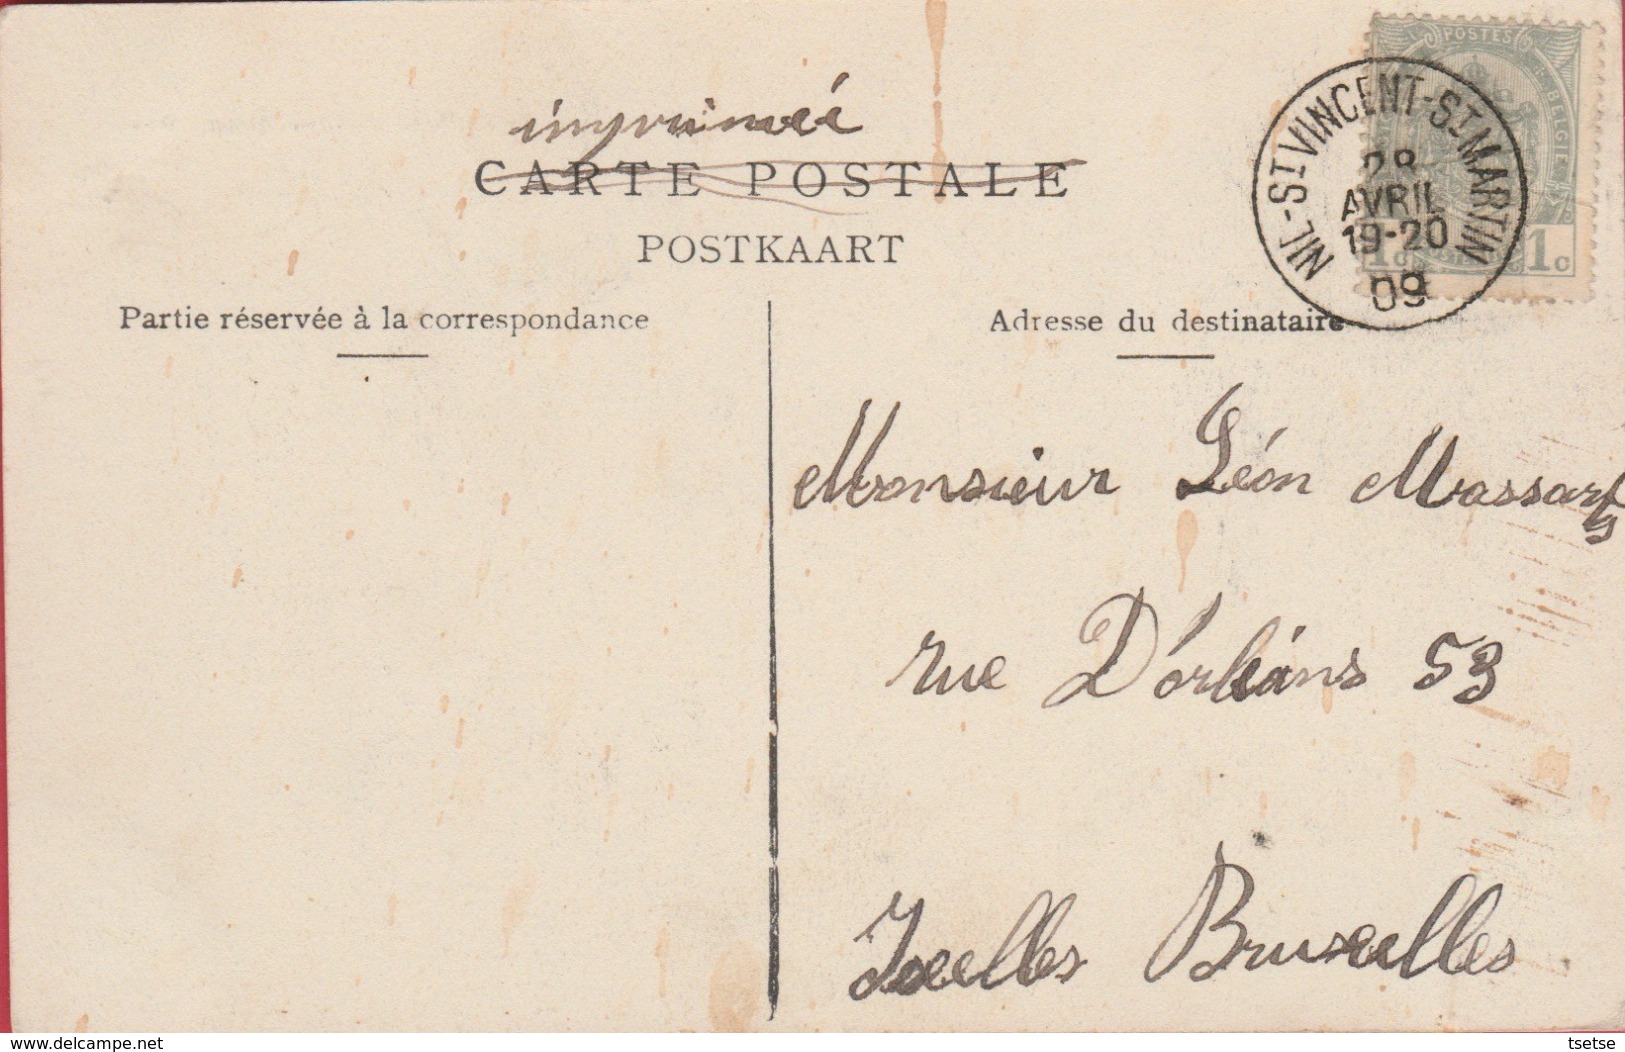 impriméé
CARTE POSTALE
POSTKAART
POSTES
BELGIE
1c 1c
NIL-ST VINCENT-ST MARTIN
28
AVRIL
19-20
09
Partie réservée à la correspondance
Adresse du destinataire
Monsieur Léon Massart
rue D'orléans 53
Ixelles Bruxelles
delcampe.net
tsetse